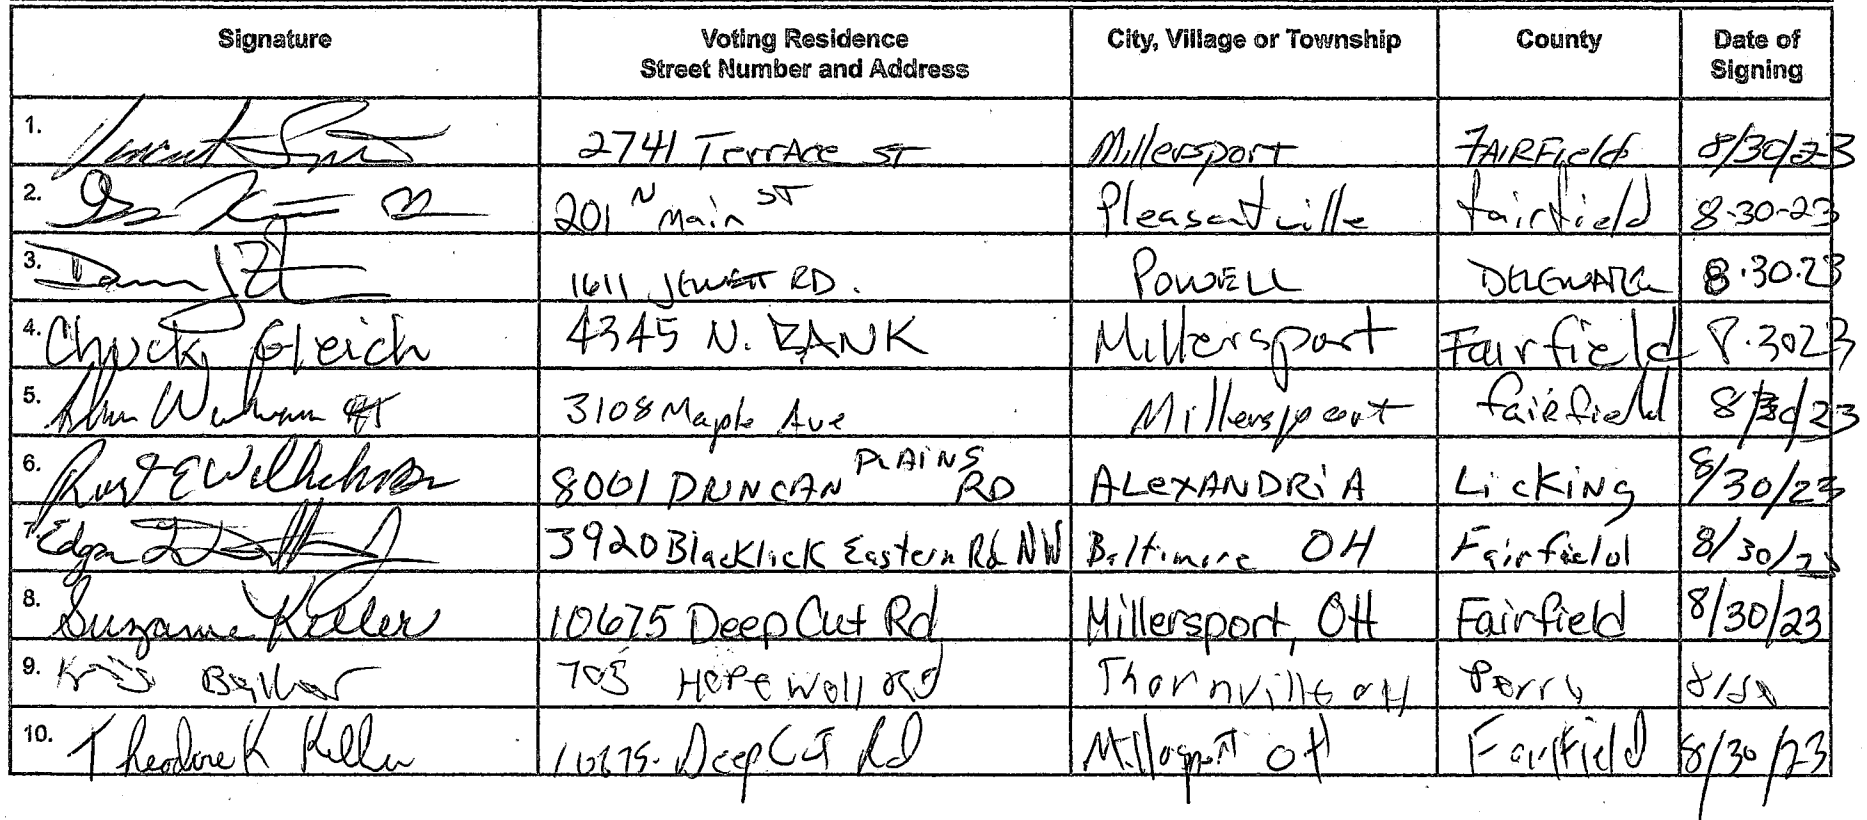 Signature Voting Residence Street Number and Address City, Village or Township County Date of Signing
1. Vincent 2741 TerrAce ST Millersport FAIRField 8/30/23
2. 201 N Main ST Pleasantville fairfield 8-30-23
3. 1611 JEWETT RD. POWELL DELEWARE 8.30.23
4. Chuck Gleich 4345 N. BANK Millersport Fairfield 8.3023
5. 3108 Maple Ave Millersport fairfield 8/30/23
6. 8061 DUNCAN PLAINS RD ALEXANDRiA LicKiNg 8/30/23
7. Edgar 3920 Blacklick Eastern Rd NW Baltimore OH Fairfield 8/30/23
8. Suzanne Keller 10675 Deep Cut Rd Millersport, OH Fairfield 8/30/23
9. Kris 703 HOPEWell Rd Thornville OH Perry
10. Theodore K Keller 10675 Deep Cut Rd Millersport OH Fairfield 8/30/23